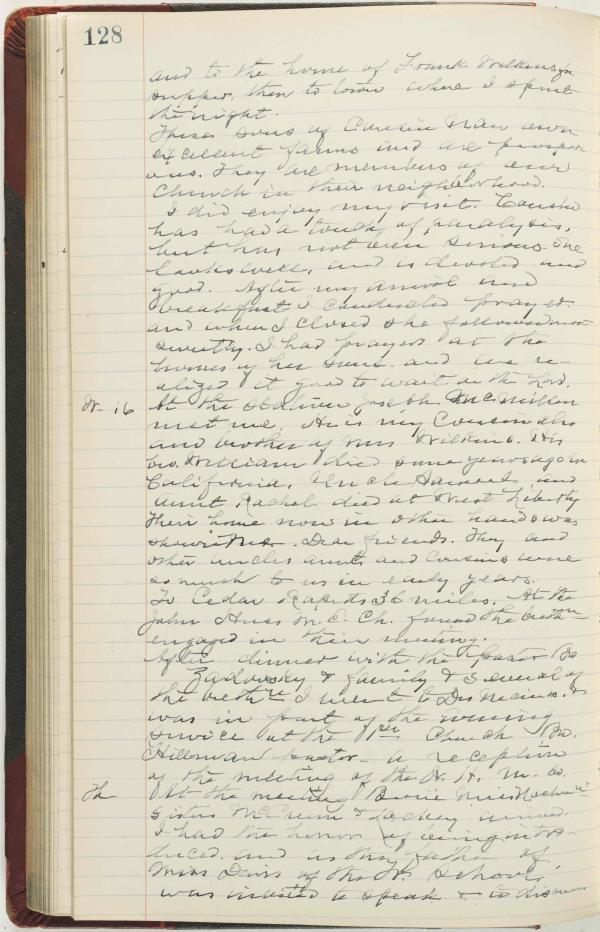 128
and to the home of Frank Wilkins for
supper, then to town where I spent
the night.
These sons of Cousin own
excellent farms and are prosper-
ous. They are members of our
Church in their neighborhood.
I did enjoy my visit. Cousin
has had a touch of paralysis,
but has not been serious. She
looks well, and is devoted and
good. After my arrival and
breakfast I conducted prayer.
and when I closed she followed most
sweetly. I had prayers at the
homes of her sons. and we re-
alized it good to wait on the Lord.
W. 16 At the station Joseph McMillan
met me. He is my Cousin also
and brother of Mrs Wilkins. His
bro. William died some years ago in
California. Uncle and
Aunt Rachel died at West Liberty
Their home now in other hands was
shown me. Dear friends. They and
other uncles aunts and cousins were
so much to us in early years.
To Cedar Rapids 36 miles. At the
John Huss M. E. Ch. found the brethn
engaged in their meeting.
After dinner with the Pastor Bro
Zadovsky & family & several of
the brethn I went to Des Moines. &
was in part of the evening
service at the 1st Church Bro.
Hillman pastor - a reception
of the meeting of the W. H. M. So.
Th At the meeting
Sisters & arrived.
I had the honor of being intro-
duced. and as the father of
Miss Davis of the School
was invited to speak & to dismiss